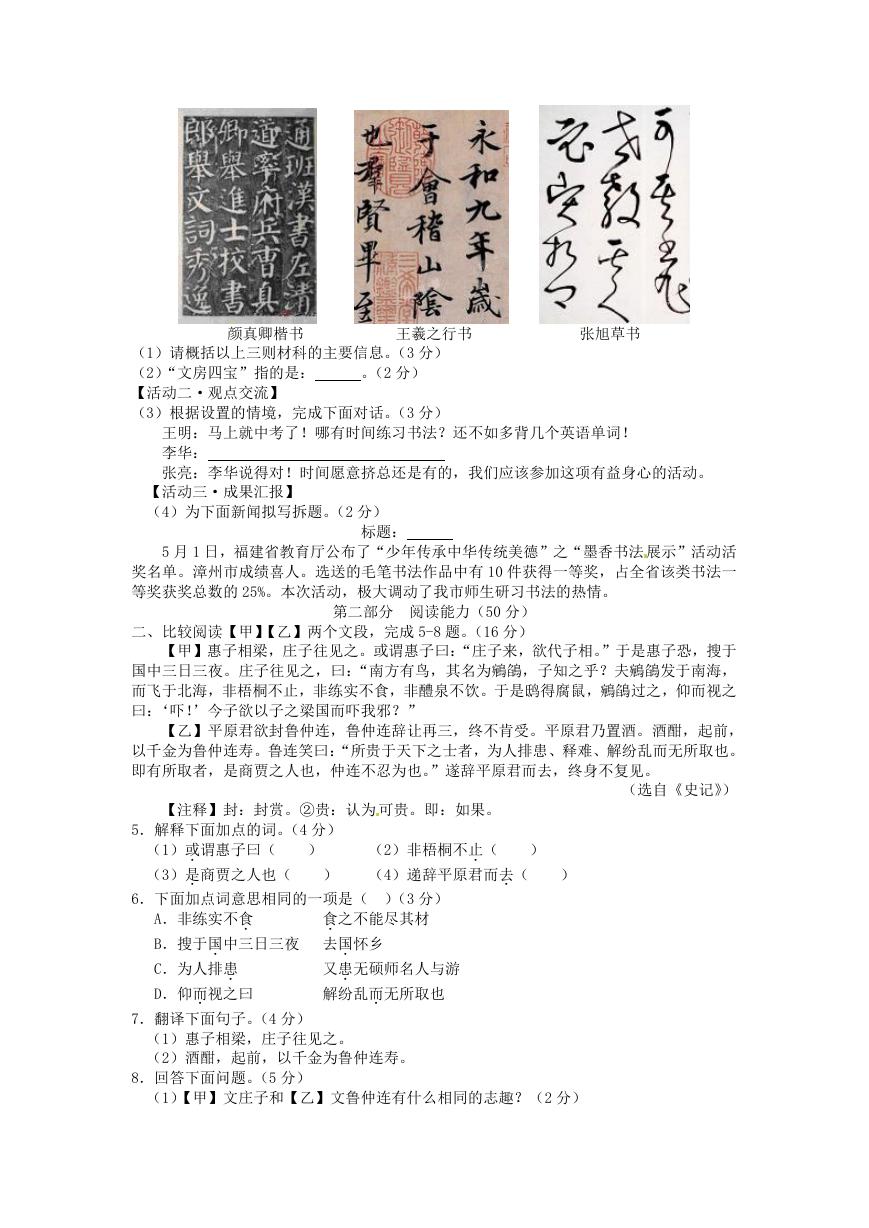 通班漢書左清
道率府兵曹真
卿舉進士校書
郎舉文詞秀逸
永和九年歲
于會稽山陰
也羣賢畢至
颜真卿楷书 王羲之行书 张旭草书
(1)请概括以上三则材科的主要信息。(3 分)
(2)“文房四宝”指的是:______。(2 分)
【活动二·观点交流】
(3)根据设置的情境，完成下面对话。(3 分)
王明：马上就中考了！哪有时间练习书法？还不如多背几个英语单词！
李华：
张亮：李华说得对！时间愿意挤总还是有的，我们应该参加这项有益身心的活动。
【活动三·成果汇报】
(4)为下面新闻拟写拆题。(2 分)
标题：______
5 月 1 日，福建省教育厅公布了“少年传承中华传统美德”之“墨香书法展示”活动活
奖名单。漳州市成绩喜人。选送的毛笔书法作品中有 10 件获得一等奖，占全省该类书法一
等奖获奖总数的 25%。本次活动，极大调动了我市师生研习书法的热情。
第二部分 阅读能力(50 分)
二、比较阅读【甲】【乙】两个文段，完成 5-8 题。(16 分)
【甲】惠子相梁，庄子往见之。或谓惠子曰：“庄子来，欲代子相。”于是惠子恐，搜于
国中三日三夜。庄子往见之，曰：“南方有鸟，其名为鹓鶵，子知之乎？夫鹓鶵发于南海，
而飞于北海，非梧桐不止，非练实不食，非醴泉不饮。于是鸱得腐鼠，鹓鶵过之，仰而视之
曰：‘吓！’今子欲以子之梁国而吓我邪？”
【乙】平原君欲封鲁仲连，鲁仲连辞让再三，终不肯受。平原君乃置酒。酒酣，起前，
以千金为鲁仲连寿。鲁连笑曰：“所贵于天下之士者，为人排患、释难、解纷乱而无所取也。
即有所取者，是商贾之人也，仲连不忍为也。”遂辞平原君而去，终身不复见。
(选自《史记》)
【注释】封：封赏。②贵：认为可贵。即：如果。
5．解释下面加点的词。(4 分)
(1)或谓惠子曰( ) (2)非梧桐不止( )
(3)是商贾之人也( ) (4)递辞平原君而去( )
6．下面加点词意思相同的一项是( )(3 分)
A．非练实不食 食之不能尽其材
B．搜于国中三日三夜 去国怀乡
C．为人排患 又患无硕师名人与游
D．仰而视之曰 解纷乱而无所取也
7．翻译下面句子。(4 分)
(1)惠子相梁，庄子往见之。
(2)酒酣，起前，以千金为鲁仲连寿。
8．回答下面问题。(5 分)
(1)【甲】文庄子和【乙】文鲁仲连有什么相同的志趣？(2 分)